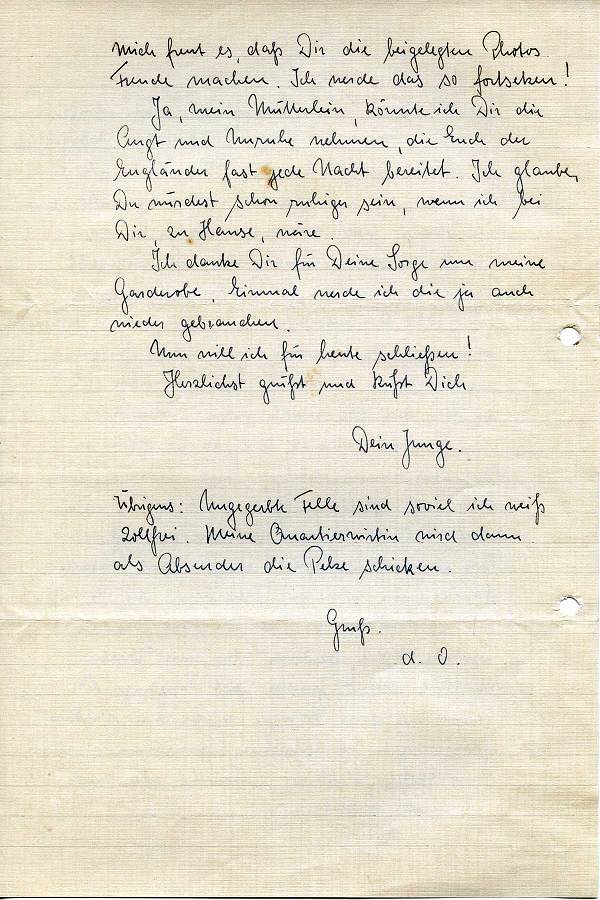 Mich freut es, daß Dir die beigelegten Photos
Freude machen. Ich werde das so fortsetzen!
Ja, mein Mütterlein, könnte ich Dir die
Angst und Unruhe nehmen, die Euch der
Engländer fast jede Nacht bereitet. Ich glaube,
Du würdest schon ruhiger sein, wenn ich bei
Dir, zu Hause, wäre.
Ich danke Dir für Deine Sorge um meine
Garderobe. Einmal werde ich die ja auch
wieder gebrauchen.
Nun will ich für heute schließen!
Herzlichst grüßt und küßt Dich
Dein Junge.
Übrigens: Ungegerbte Felle sind soviel ich weiß
zollfrei. Meine Quartierwirtin wird dann
als Absender die Pelze schicken.
Gruß.
d. O.